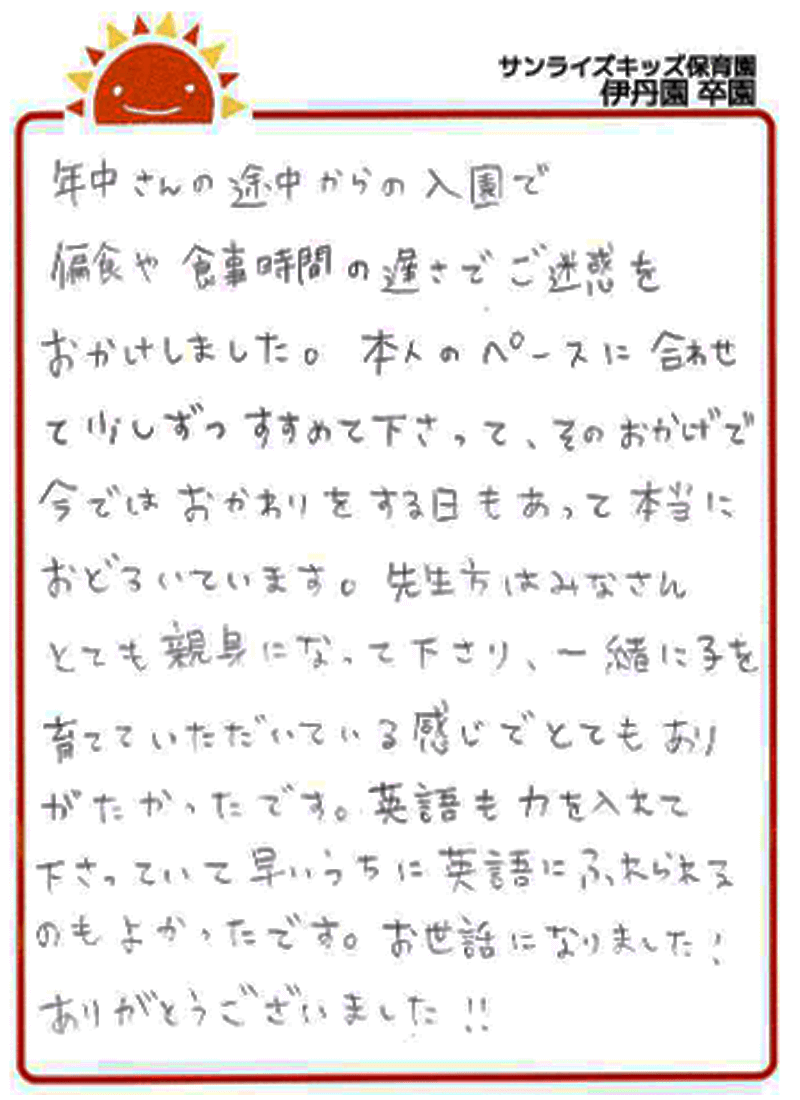 サンライズキッズ保育園
伊丹園 卒園
年中さんの途中からの入園で
偏食や食事時間の遅さでご迷惑を
おかけしました。本人のペースに合わせ
て少しずつすすめて下さって、そのおかげで
今ではおかわりをする日もあって本当に
おどろいています。先生方はみなさん
とても親身になって下さり、一緒に子を
育てていただいている感じでとてもあり
がたかったです。英語も力を入れて
下さっていて早いうちに英語にふれられる
のもよかったです。お世話になりました!
ありがとうございました!!